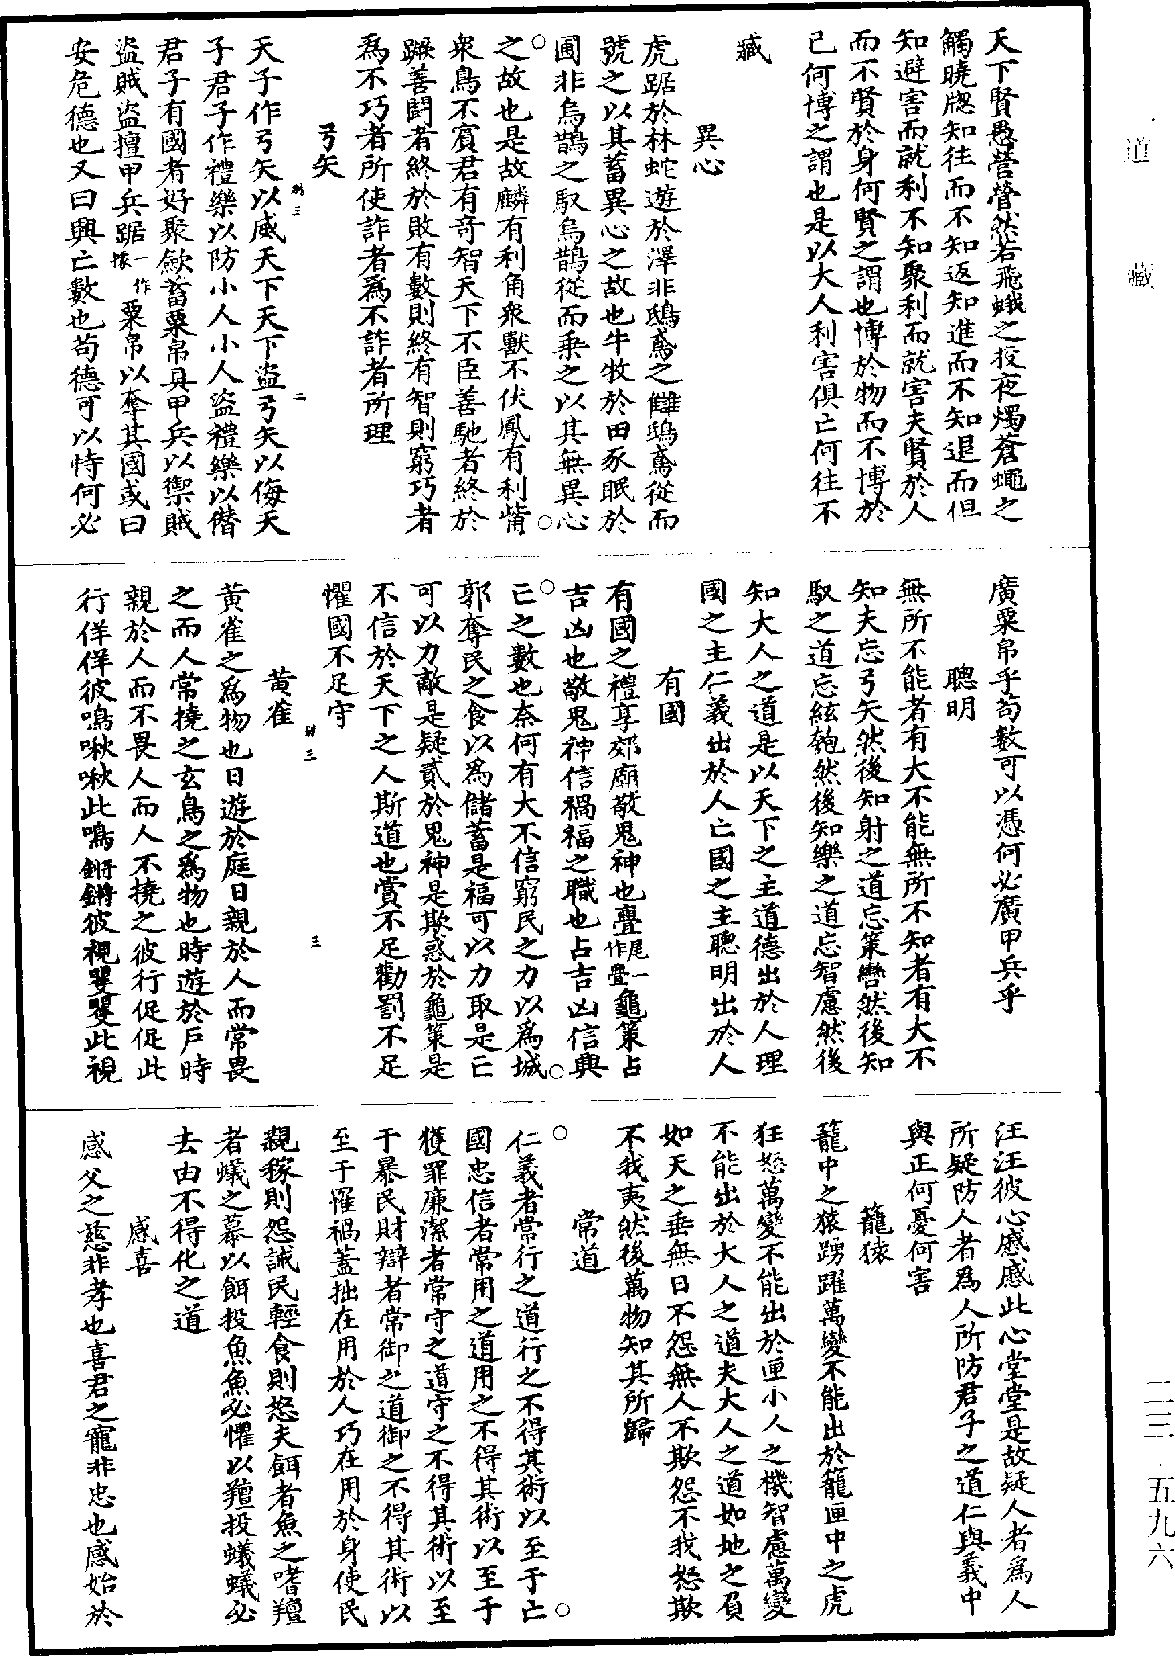 道藏
天下賢愚營營然若飛蛾之投夜燭蒼蠅之
觸曉牕知往而不知返知進而不知退而但
知避害而就利不知聚利而就害夫賢於人
而不賢於身何賢之謂也博於物而不博於
已何博之謂也是以大人利害俱亡何往不
臧
異心
虎踞於林蛇遊於澤非鴟鳶之讎鴟鳶從而
號之以其蓄異心之故也牛牧於田豕眠於
圃非烏鵲之馭烏鵲從而乘之以其無異心
之故也是故麟有利角衆獸不伏鳳有利觜
衆鳥不賓君有奇智天下不臣善馳者終於
蹶善鬪者終於敗有數則終有智則窮巧者
爲不巧者所使詐者爲不詐者所理
弓矢
天子作弓矢以威天下天下盜弓矢以侮天
子君子作禮樂以防小人小人盜禮樂以僭
君子有國者好聚歛蓄粟帛具甲兵以禦賊
盜賊盜擅甲兵踞一作據粟帛以奪其國或曰
安危德也又曰興亡數也苟德可以恃何必
廣粟帛乎苟數可以憑何必廣甲兵乎
聰明
無所不能者有大不能無所不知者有大不
知夫忘弓矢然後知射之道忘策轡然後知
馭之道忘絃匏然後知樂之道忘智慮然後
知大人之道是以天下之主道德出於人理
國之主仁義出於人亡國之主聰明出於人
有國
有國之禮享郊廟敬鬼神也亹尾一作疊龜策占
吉凶也敬鬼神信禍福之職也占吉凶信興
亡之數也奈何有大不信窮民之力以爲城
郭奪民之食以爲儲蓄是福可以力取是亡
可以力敵是疑貳於鬼神是欺惑於龜策是
不信於天下之人斯道也賞不足勸罰不足
懼國不足守
黃雀
黃雀之爲物也日遊於庭日親於人而常畏
之而人常撓之玄鳥之爲物也時遊於戶時
親於人而不畏人而人不撓之彼行促促此
行佯佯彼鳴啾啾此鳴鏘鏘彼視矍矍此視
汪汪彼心慼慼此心堂堂是故疑人者爲人
所疑防人者爲人所防君子之道仁與義中
與正何憂何害
籠猿
籠中之猿踴躍萬變不能出於籠匣中之虎
狂怒萬變不能出於匣小人之機智慮萬變
不能出於大人之道夫大人之道如地之負
如天之垂無日不怨無人不欺怨不我怒欺
不我夷然後萬物知其所歸
常道
仁義者常行之道行之不得其術以至于亡
國忠信者常用之道用之不得其術以至于
獲罪廉潔者常守之道守之不得其術以至
于暴民財辯者常御之道御之不得其術以
至于罹禍蓋拙在用於人巧在用於身使民
親稼則怨誡民輕食則怒夫餌者魚之嗜羶
者蟻之慕以餌投魚魚必懼以羶投蟻蟻必
去由不得化之道
感喜
感父之慈非孝也喜君之寵非忠也感始於
二三·五九六